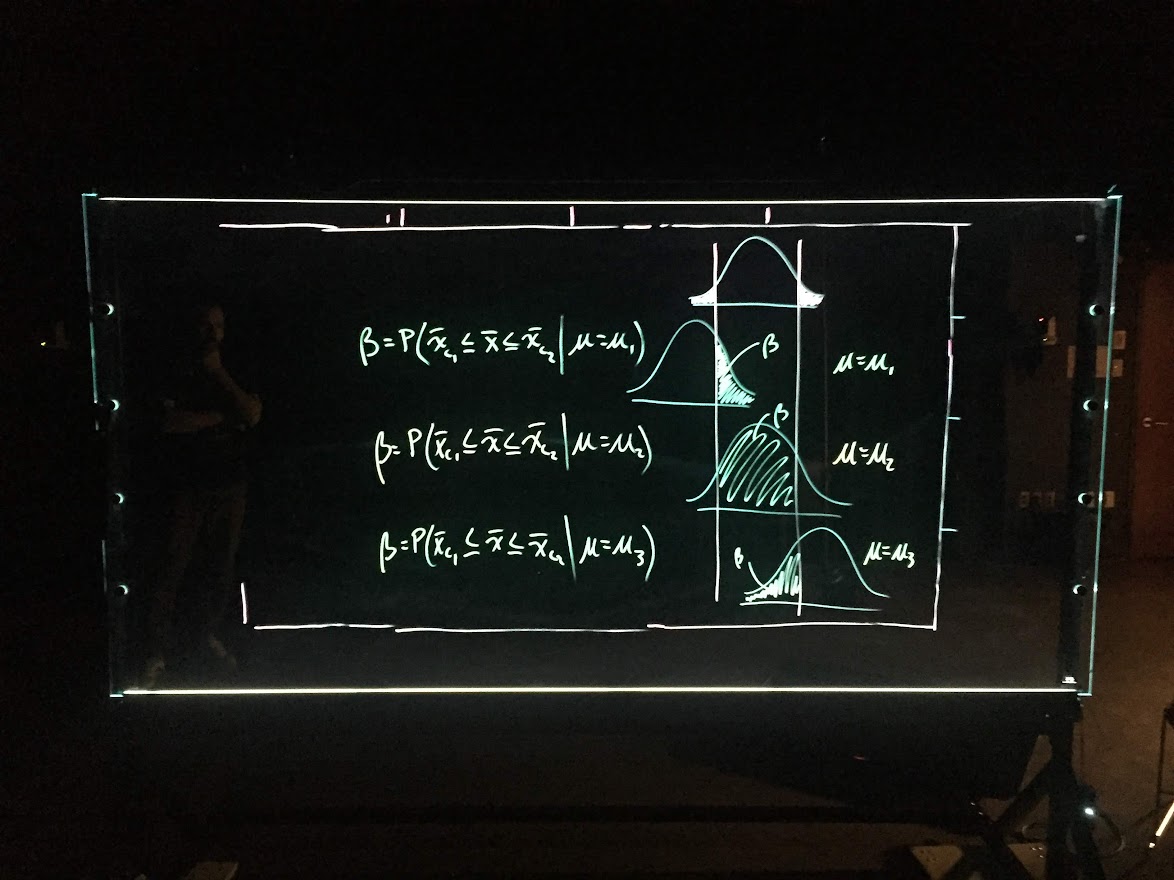 β=P(x̄c₁ ≤ x̄ ≤ x̄c₂ | μ=μ₁) β μ=μ₁
β=P(x̄c₁ ≤ x̄ ≤ x̄c₂ | μ=μ₂) β μ=μ₂
β=P(x̄c₁ ≤ x̄ ≤ x̄c₂ | μ=μ₃) β μ=μ₃